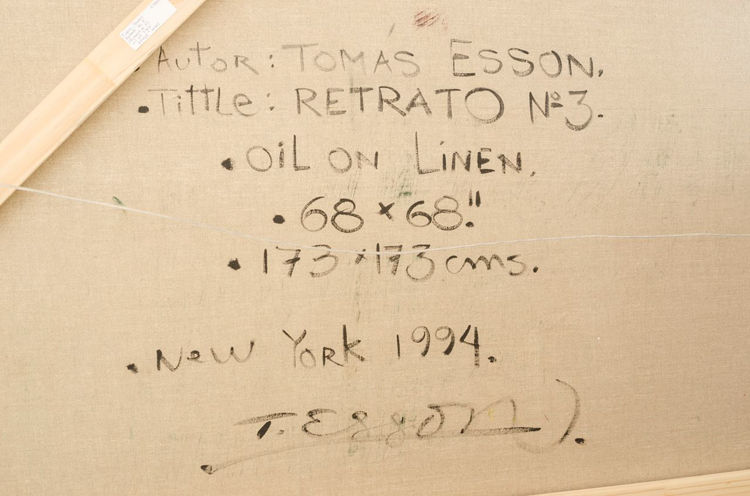 . Autor: TOMAS ESSON.
. Tittle: RETRATO Nº3.
. OiL ON LiNEN.
. 68 x 68".
. 173 x 173 cms.
. New York 1994.
T. Esson).